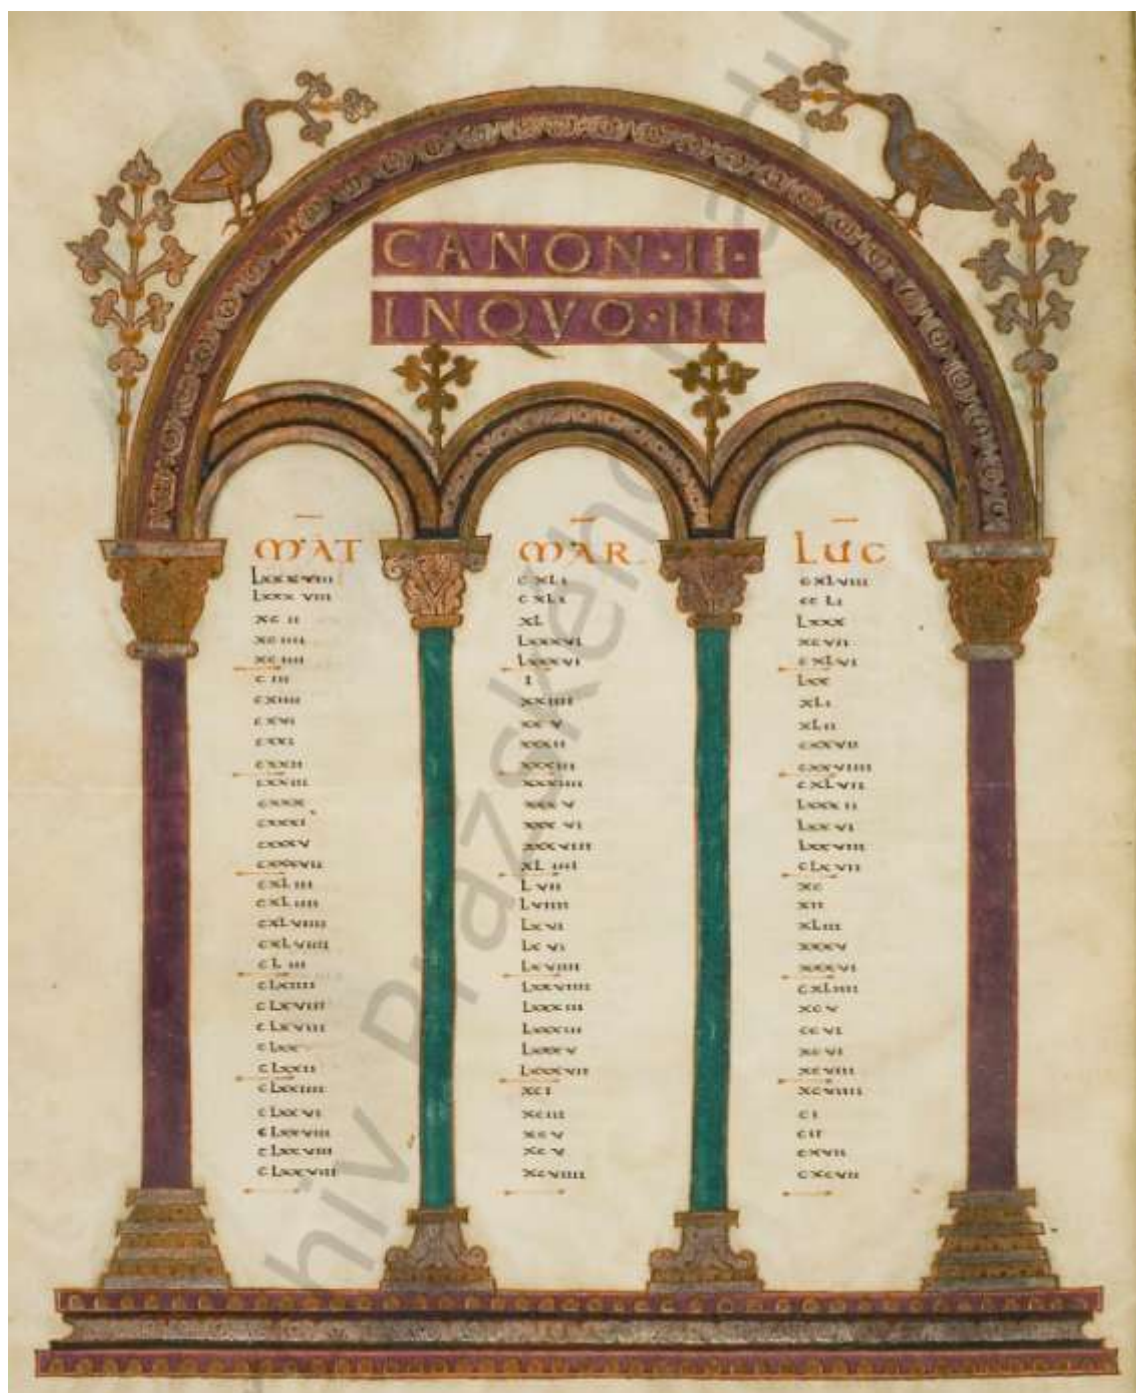 CANON·II·
INQVO·III·
MAT MAR LUC
Lxxxviii cxLi cxLviii
Lxxxviii cxLi ccLi
xcii xL Lxxx
xciiii Lxxxvi xcvii
xciiii Lxxxvi cxLvi
ciii i Lxx
cxiiii xxiiii xLi
cxvi xxv xLii
cxxi xxxii cxxvii
cxxii xxxiii cxxviiii
cxxiii xxxiiii cxLvii
cxxx xxxv Lxxxii
cxxxi xxxvi Lxxvi
cxxxv xxxviii Lxxviii
cxxxvii xLiiii cLxvii
cxLiii Lvii xc
cxLiiii Lviiii xii
cxLviiii Lxvi xLiii
cxLviiii Lxvi xxxv
cLiii Lxviiii xxxvi
cLxiiii Lxxviiii cxLiiii
cLxviii Lxxxiii xcv
cLxviii Lxxxiii ccvi
cLxx Lxxxv xcvi
cLxxii Lxxxvii xcviii
cLxxiiii xci xcviiii
cLxxvi xciii ci
cLxxviii xcv cii
cLxxviii xcv cxvii
cLxxviiii xcviiii cxcvii